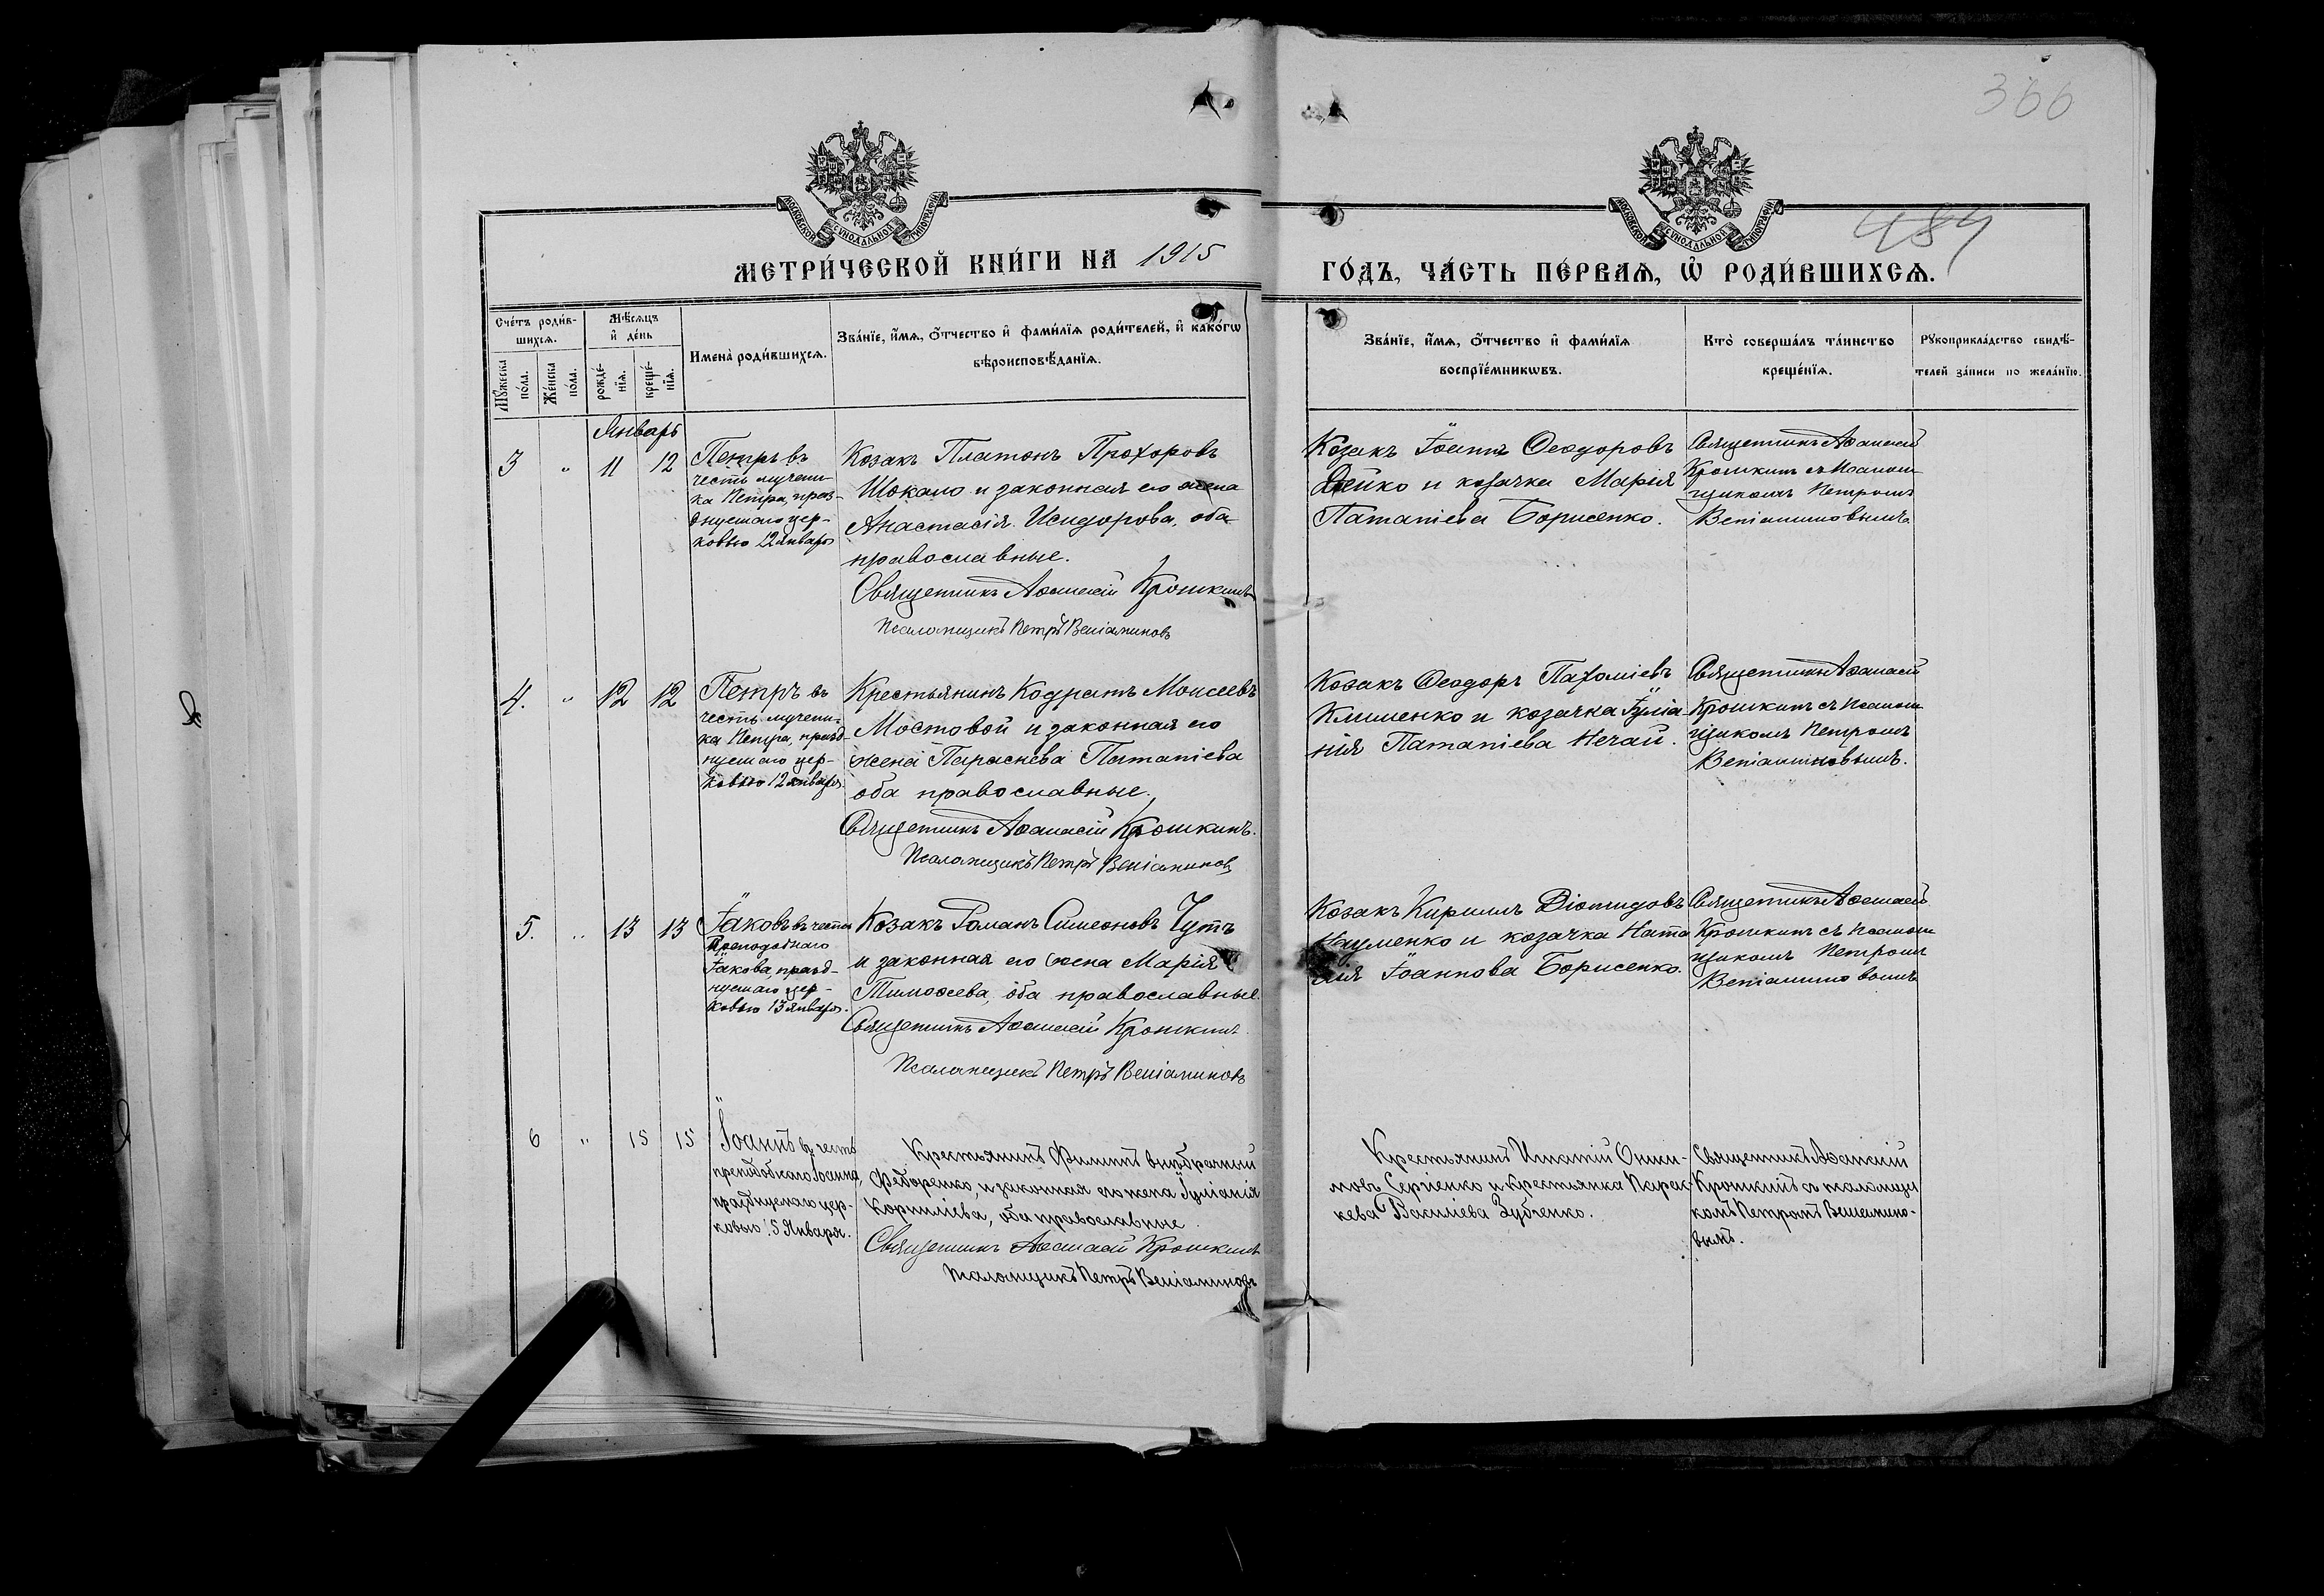 366
МОСКОВСКОЙ СѴНОДАЛЬНОЙ ТИПОГРАФІИ
МОСКОВСКОЙ СѴНОДАЛЬНОЙ ТИПОГРАФІИ
484
МЕТРИ́ЧЕСКОЙ КНИ́ГИ НА 1915
ГО́ДЪ, ЧА́СТЬ ПЕ́РВАѦ, Ѡ҆ РОДИ́ВШИХСѦ.
Сче́тъ роди́в-
шихсѧ.
Мѣ́сѧцъ
и҆ де́нь
Мꙋ́жеска
по́ла.
Же́нска
по́ла.
рожде́-
нїѧ.
креще́-
нїѧ.
Имена̀ роди́вшихсѧ.
Зва́нїе, и҆́мѧ, ѻ҆́тчество и҆ фами́лїѧ роди́телей, и҆ како́гѡ
вѣроисповѣ́данїѧ.
Зва́нїе, и҆́мѧ, ѻ҆́тчество и҆ фами́лїѧ
воспрїе́мникѡвъ.
Кто̀ соверша́лъ та́инство
креще́нїѧ.
Рꙋкоприкла́дство свидѣ́-
телей за́писи по жела́нїю.
Январь
3 " 11 12
Петръ въ
честь мучени-
ка Петра, праз-
днуемаго цер-
ковью 12 января
Козакъ Платонъ Прохоровъ
Шокало и законная его жена
Анастасія Исидорова, оба
православные.
Священникъ Аѳанасій Крошкинъ
Псаломщикъ Петръ Веніаминовъ
Козакъ Іоаннъ Ѳеодоровъ
Дейко и козачка Марія
Патапіева Борисенко.
Священникъ Аѳанасій
Крошкинъ съ Псалом-
щикомъ Петромъ
Веніаминовымъ.
4. " 12 12
Петръ въ
честь мучени-
ка Петра, празд-
нуемаго цер-
ковью 12 января.
Крестьянинъ Кодратъ Моисеевъ
Мостовой и законная его
жена Параскева Патапіева
оба православные.
Священникъ Аѳанасій Крошкинъ.
Псаломщикъ Петръ Веніаминовъ
Козакъ Ѳеодоръ Пахоміевъ
Клименко и козачка Іуліа-
нія Патапіева Нечай.
Священникъ Аѳанасій
Крошкинъ съ Псалом
щикомъ Петромъ
Веніаминовымъ.
5. " 13 13
Іаковъ въ честь
Преподобнаго
Іакова, празд-
нуемаго цер-
ковью 13 января.
Козакъ Романъ Симеоновъ Чутъ
и законная его жена Марія
Тимоѳеева, оба православные.
Священникъ Аѳанасій Крошкинъ
Псаломщикъ Петръ Веніаминовъ
Козакъ Кириллъ Діомидовъ
Науменко и козачка Ната
лія Іоаннова Борисенко.
Священникъ Аѳанасій
Крошкинъ съ Псалом
щикомъ Петромъ
Веніаминовымъ
6 " 15 15
Іоаннъ въ честь
преподобнаго Іоанна,
празднуемаго цер-
ковью 15 Января.
Крестьянинъ Филиппъ внѣбрачный
Федоренко, и законная его жена Іуліанія
Корниліева, оба православные.
Священникъ Аѳанасій Крошкинъ
Псаломщикъ Петръ Веніаминовъ
Крестьянинъ Игнатій Оники-
мовъ Сергіенко и Крестьянка Парас-
кева Василіева Зубченко.
Священникъ Аѳанасій
Крошкинъ съ псаломщи
комъ Петромъ Веніамино-
вымъ.